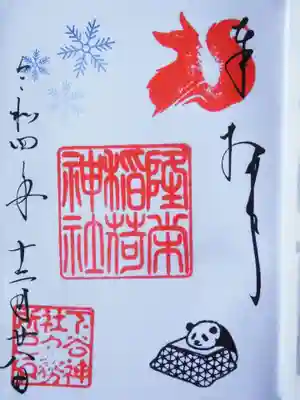 奉拝
隆栄
稲荷
神社
令和四年十二月廿八日
下谷神
社々務
所之印